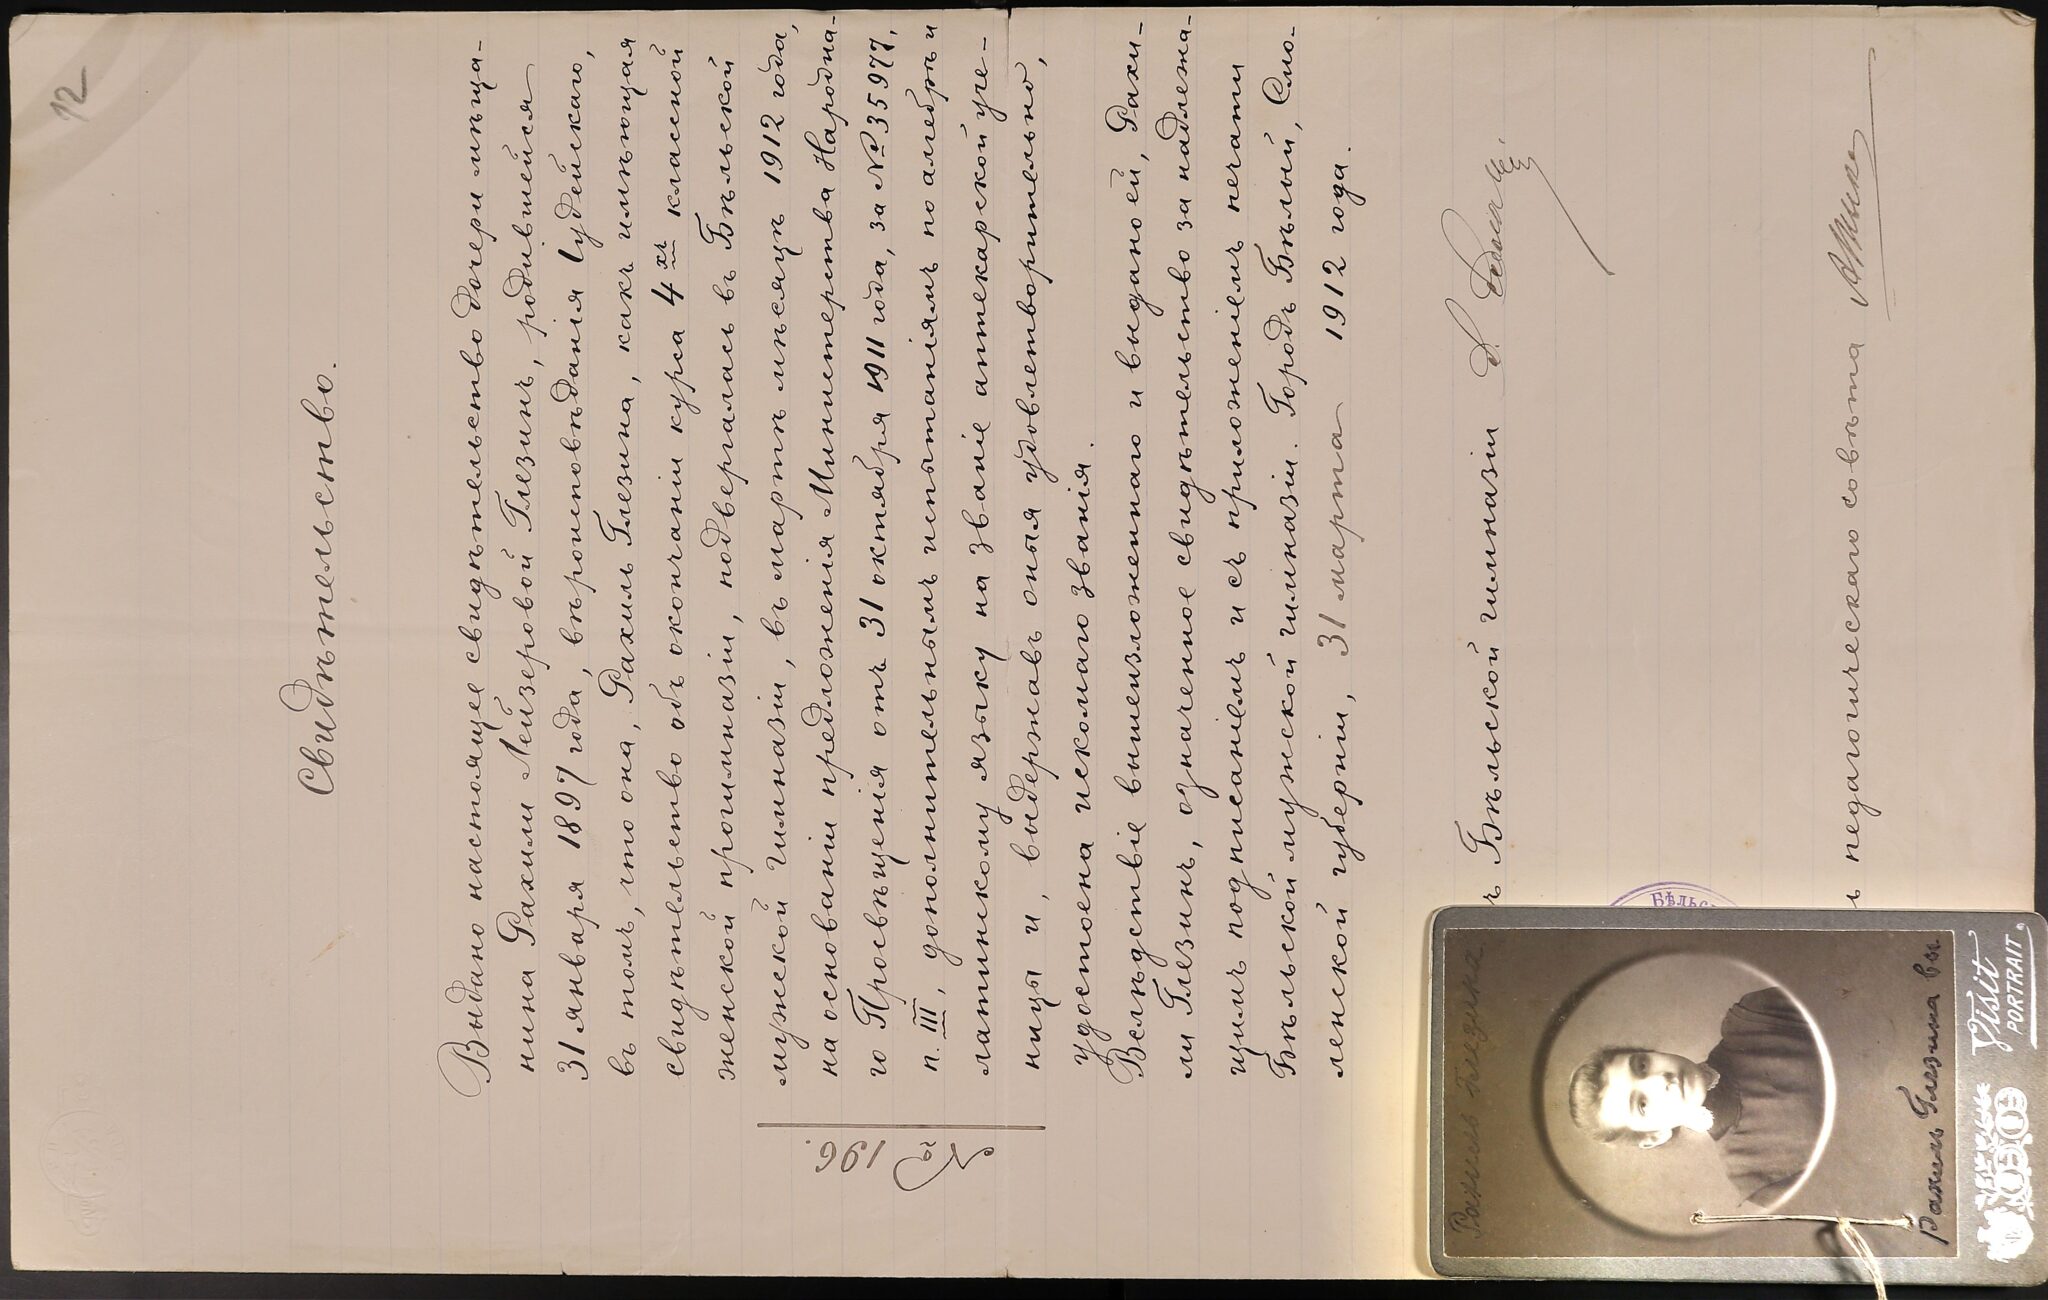 12
Свидѣтельство.
Выдано настоящее свидѣтельство дочери мѣща-
нина Рахили Лейзеровой Глезинъ, родившейся
31 января 1897 года, вѣроисповѣданія Іудейскаго,
въ томъ, что она, Рахиль Глезина, какъ имѣющая
свидѣтельство объ окончаніи курса 4хъ классной
женской прогимназіи, подвергалась въ Бѣльской
мужской гимназіи, въ мартѣ мѣсяцѣ 1912 года,
на основаніи предложенія Министерства Народна-
го Просвѣщенія отъ 31 октября 1911 года, за № 35977,
п. III, дополнительнымъ испытаніямъ по алгебрѣ и
латинскому языку на званіе аптекарской уче-
ницы и, выдержавъ оныя удовлетворительно,
удостоена искомаго званія.
Вслѣдствіе вышеизложеннаго и выдано ей, Рахи-
ли Глезинъ, означенное свидѣтельство за надлежа-
щимъ подписаніемъ и съ приложеніемъ печати
Бѣльской мужской гимназіи. Городъ Бѣлый, Смо-
ленской губерніи, 31 марта 1912 года.
№ 196.
ъ Бѣльской гимназіи
БѢЛЬС
ь педагогическаго совѣта
Рахиль Глезина
Рахиль Глезина вы
Visit
PORTRAIT